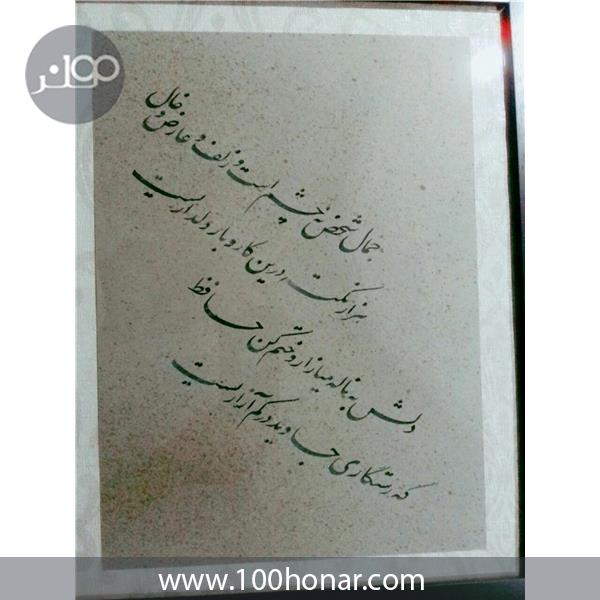 ۱۰۰هنر
جمال شخص نه چشم است و زلف و عارض و خال
هزار نکته درین کار و بار دلداریست
دلش به ناله میازار و ختم کن حافظ
که رستگاری جاوید در کم آزاریست
www.100honar.com